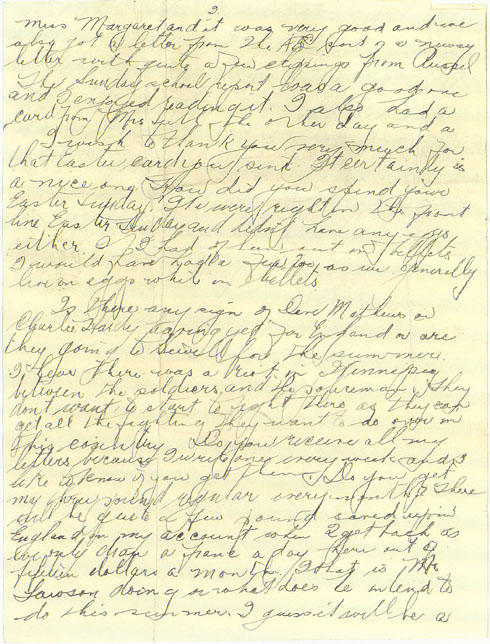 2
Miss Margaret and it was very good and we
also got a letter from sort of a newsy
letter with quite a few clippings from
The Sunday school report was a good one
and I enjoyed reading it. I also had a
card from Mrs the other day and a
I wish to thank you very much for
that Easter card you sent. It certainly is
a nice one. How did you spend your
Easter Sunday. We were right in the front
line Easter Sunday and didn't have any eggs
either. If I had of been out in billets
I would have had a few too, as we generally
live on eggs while in billets.
Is there any sign of Dave Mathews or
Charlie going yet for England or are
they going to for the summer.
I hear there was a riot in Winnepeg
between the soldiers and the policeman. They
dont want to start to fight there as they can
get all the fighting they want to do over in
this country. Do you receive all my
letters because I write one every week and I
like to know if you get them. Do you get
my pound regular every month? There
will be quite a few pound saved up in
England on my account when I get back as
we only draw a franc a day here out of
fifteen dollars a month. What is Mr
Lawson doing or what does he intend to
do this summer. I guess it will be a